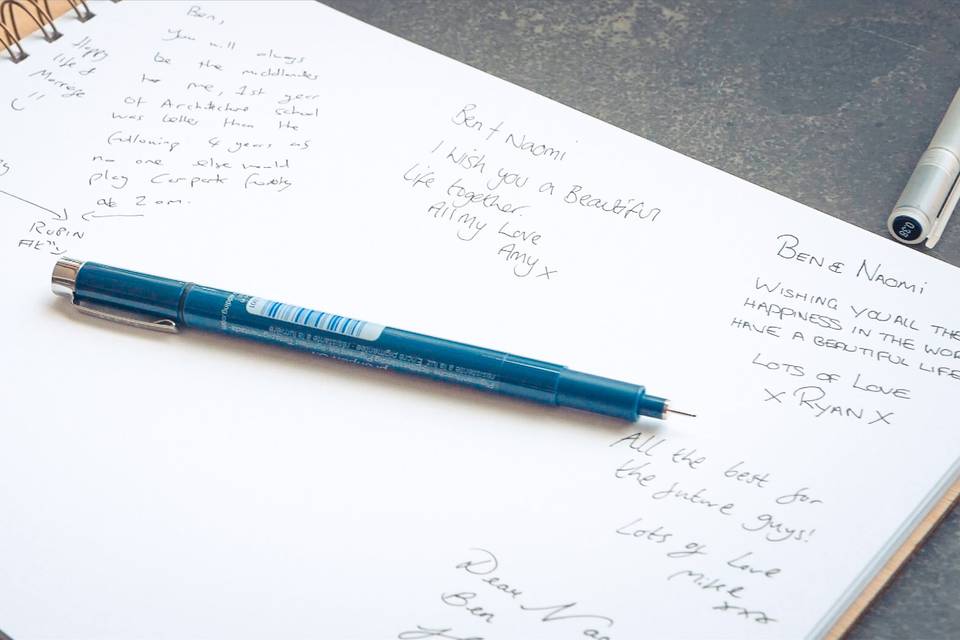 Ben,
You will always
be the middlandes
to me, 1st year
of Architecture school
was better than the
following 4 years as
no one else would
play Carpark frisby
at 2 am.
Happy
life &
Marrage
ROBIN
Ben & Naomi
I wish you a Beautiful
Life together.
All my Love
Amy x
BEN & NAOMI
WISHING YOU ALL THE
HAPPINESS IN THE WOR
HAVE A BEAUTIFUL LIFE
LOTS OF LOVE
x RYAN x
All the best for
the future guys!
Lots of love
Mike
xxx
Dear Na
Ben
0.38